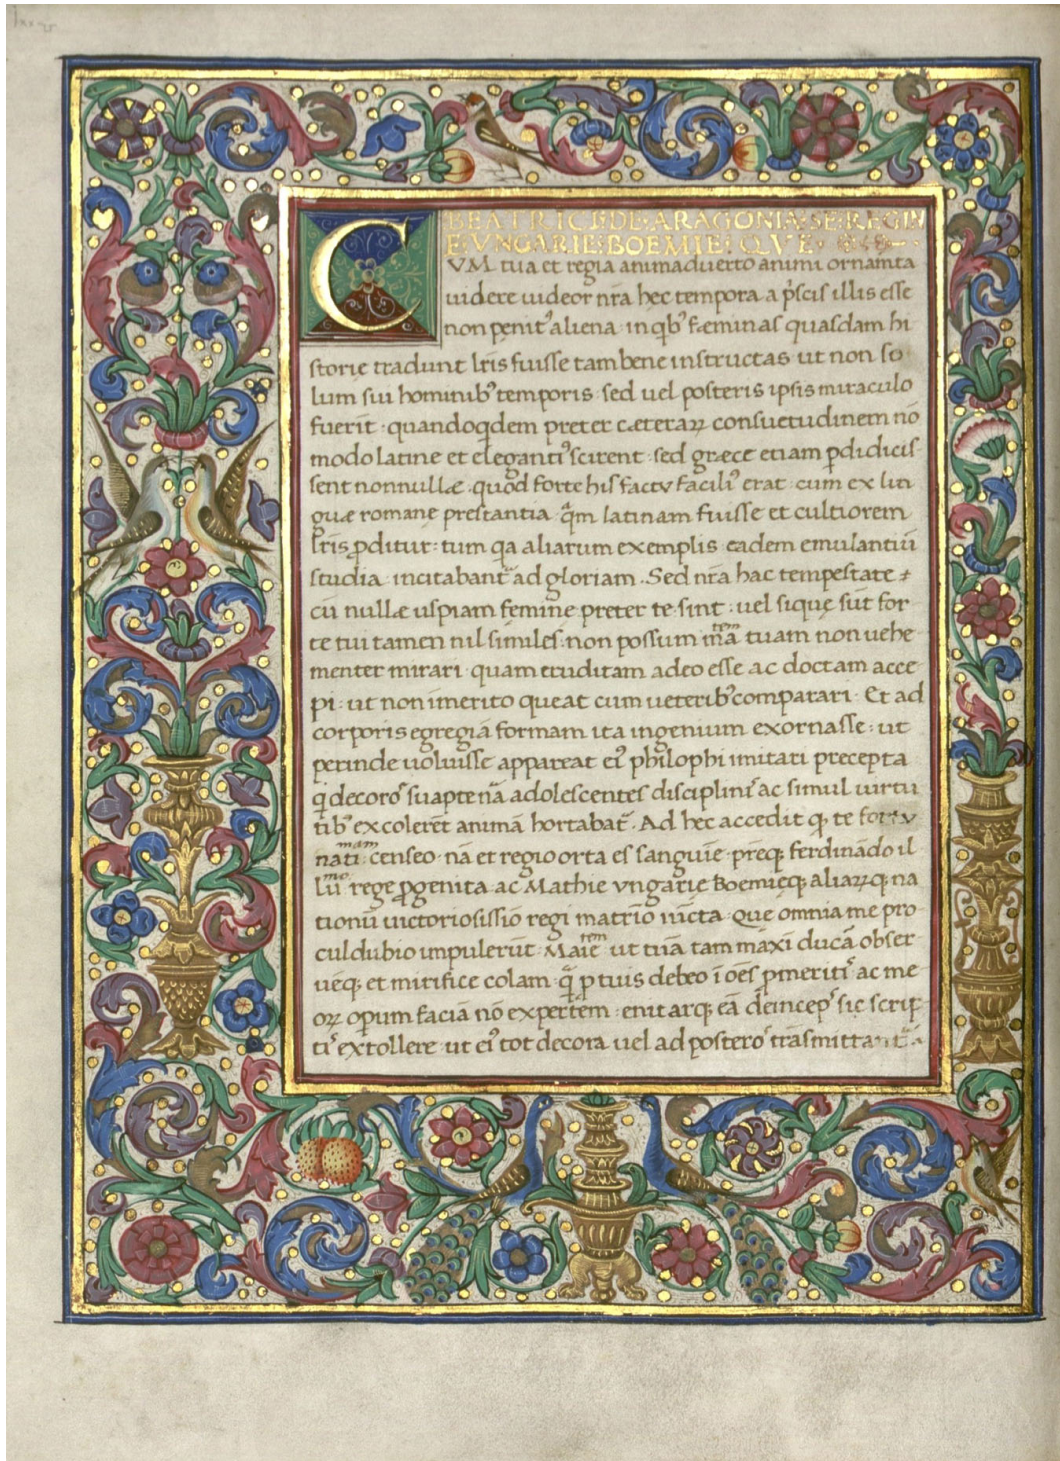 BEATRICI·DE·ARAGONIA·SE·REGIN
E·VNGARIE:BOEMIE:QVE·
CVM tua et regia animaduerto animi ornam̄ta
uidere uideor nr̄a hec tempora a p̓scis illis esse
non penit᾽ aliena· in qb᾽ fæminas quasdam hi
storie tradunt lr̄is fuisse tam bene instructas· ut non so
lum sui hominib᾽ temporis· sed uel posteris ipsis miraculo
fuerīt· quandoqdem preter cæteraꝝ consuetudinem nō
modo latine et eleganti᾽ scirent· sed græce etiam ꝑdidicis
sent nonnullæ· quod forte his factu facili᾽ erat· cum ex lin
guæ romane prestantia· qm̄ latinam fuisse et cultiorem
lr̄is ꝓditur: tum qa aliarum exemplis eadem emulantiū
studia· incitabant᾽ ad gloriam. Sed nr̄a hac tempestate
cū nullæ uspiam femine preter te sint: uel si que sūt for
te tui tamen nil similes: non possum mātem tuam non uehe
menter mirari· quam eruditam adeo esse ac doctam acce
pi· ut non īmerito queat cum ueterib᾽ comparari· Et ad
corporis egregiā formam ita ingenium exornasse: ut
perinde uoluisse appareat ei᾽ philophi imitari precepta
q decoro᾽ suapte nā adolescentes disciplini᾽ ac simul uirtu
tib᾽ excolerēt animā hortabat᾽. Ad hec accedit ꝙ te fortu
natimam censeo· nā et regio orta es sanguīe· preqꝫ ferdinādo il
lūmo rege ꝓgenita· ac Mathie vngarie Boemieqꝫ aliaꝝqꝫ na
tionū uictoriosissio regi matrīo iūcta· Que omnia me pro
culdubio impulerūt· Maiētem ut tuā tam māxi ducā obser
uēqꝫ et mirifice colam· q̄ p tuis debeo ī oēs ꝑmeriti᾽ ac me
oꝝ opum faciā nō expertem· enitarqꝫ eā deincep᾽ sic scrip
ti᾽ extollere· ut ei᾽ tot decora uel ad postero᾽ trāsmittant᾽